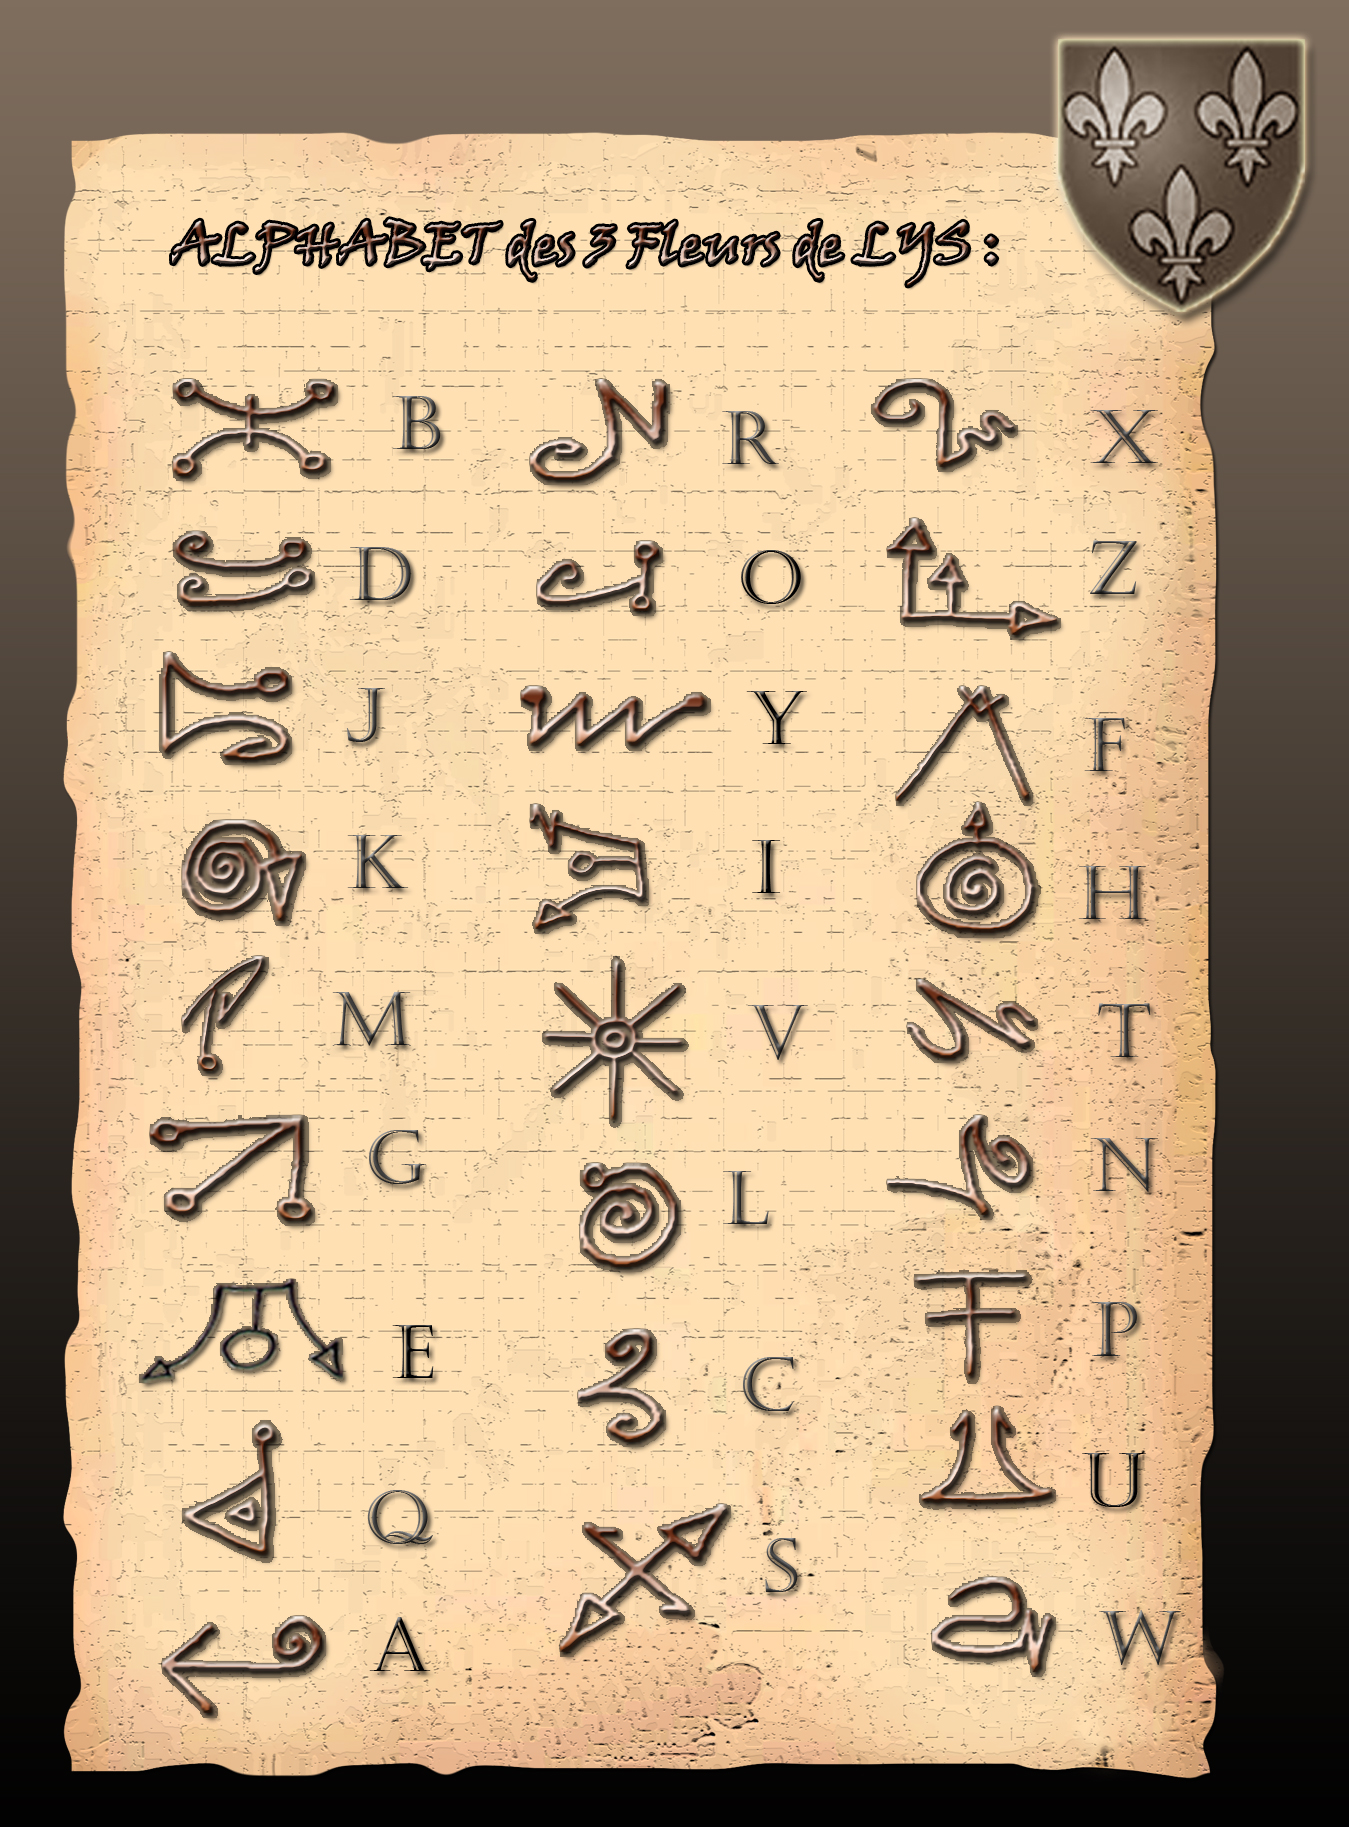 ALPHABET des 3 Fleurs de LYS :
B R X
D O Z
J Y F
K I H
M V T
G L N
E C P
Q S U
A W